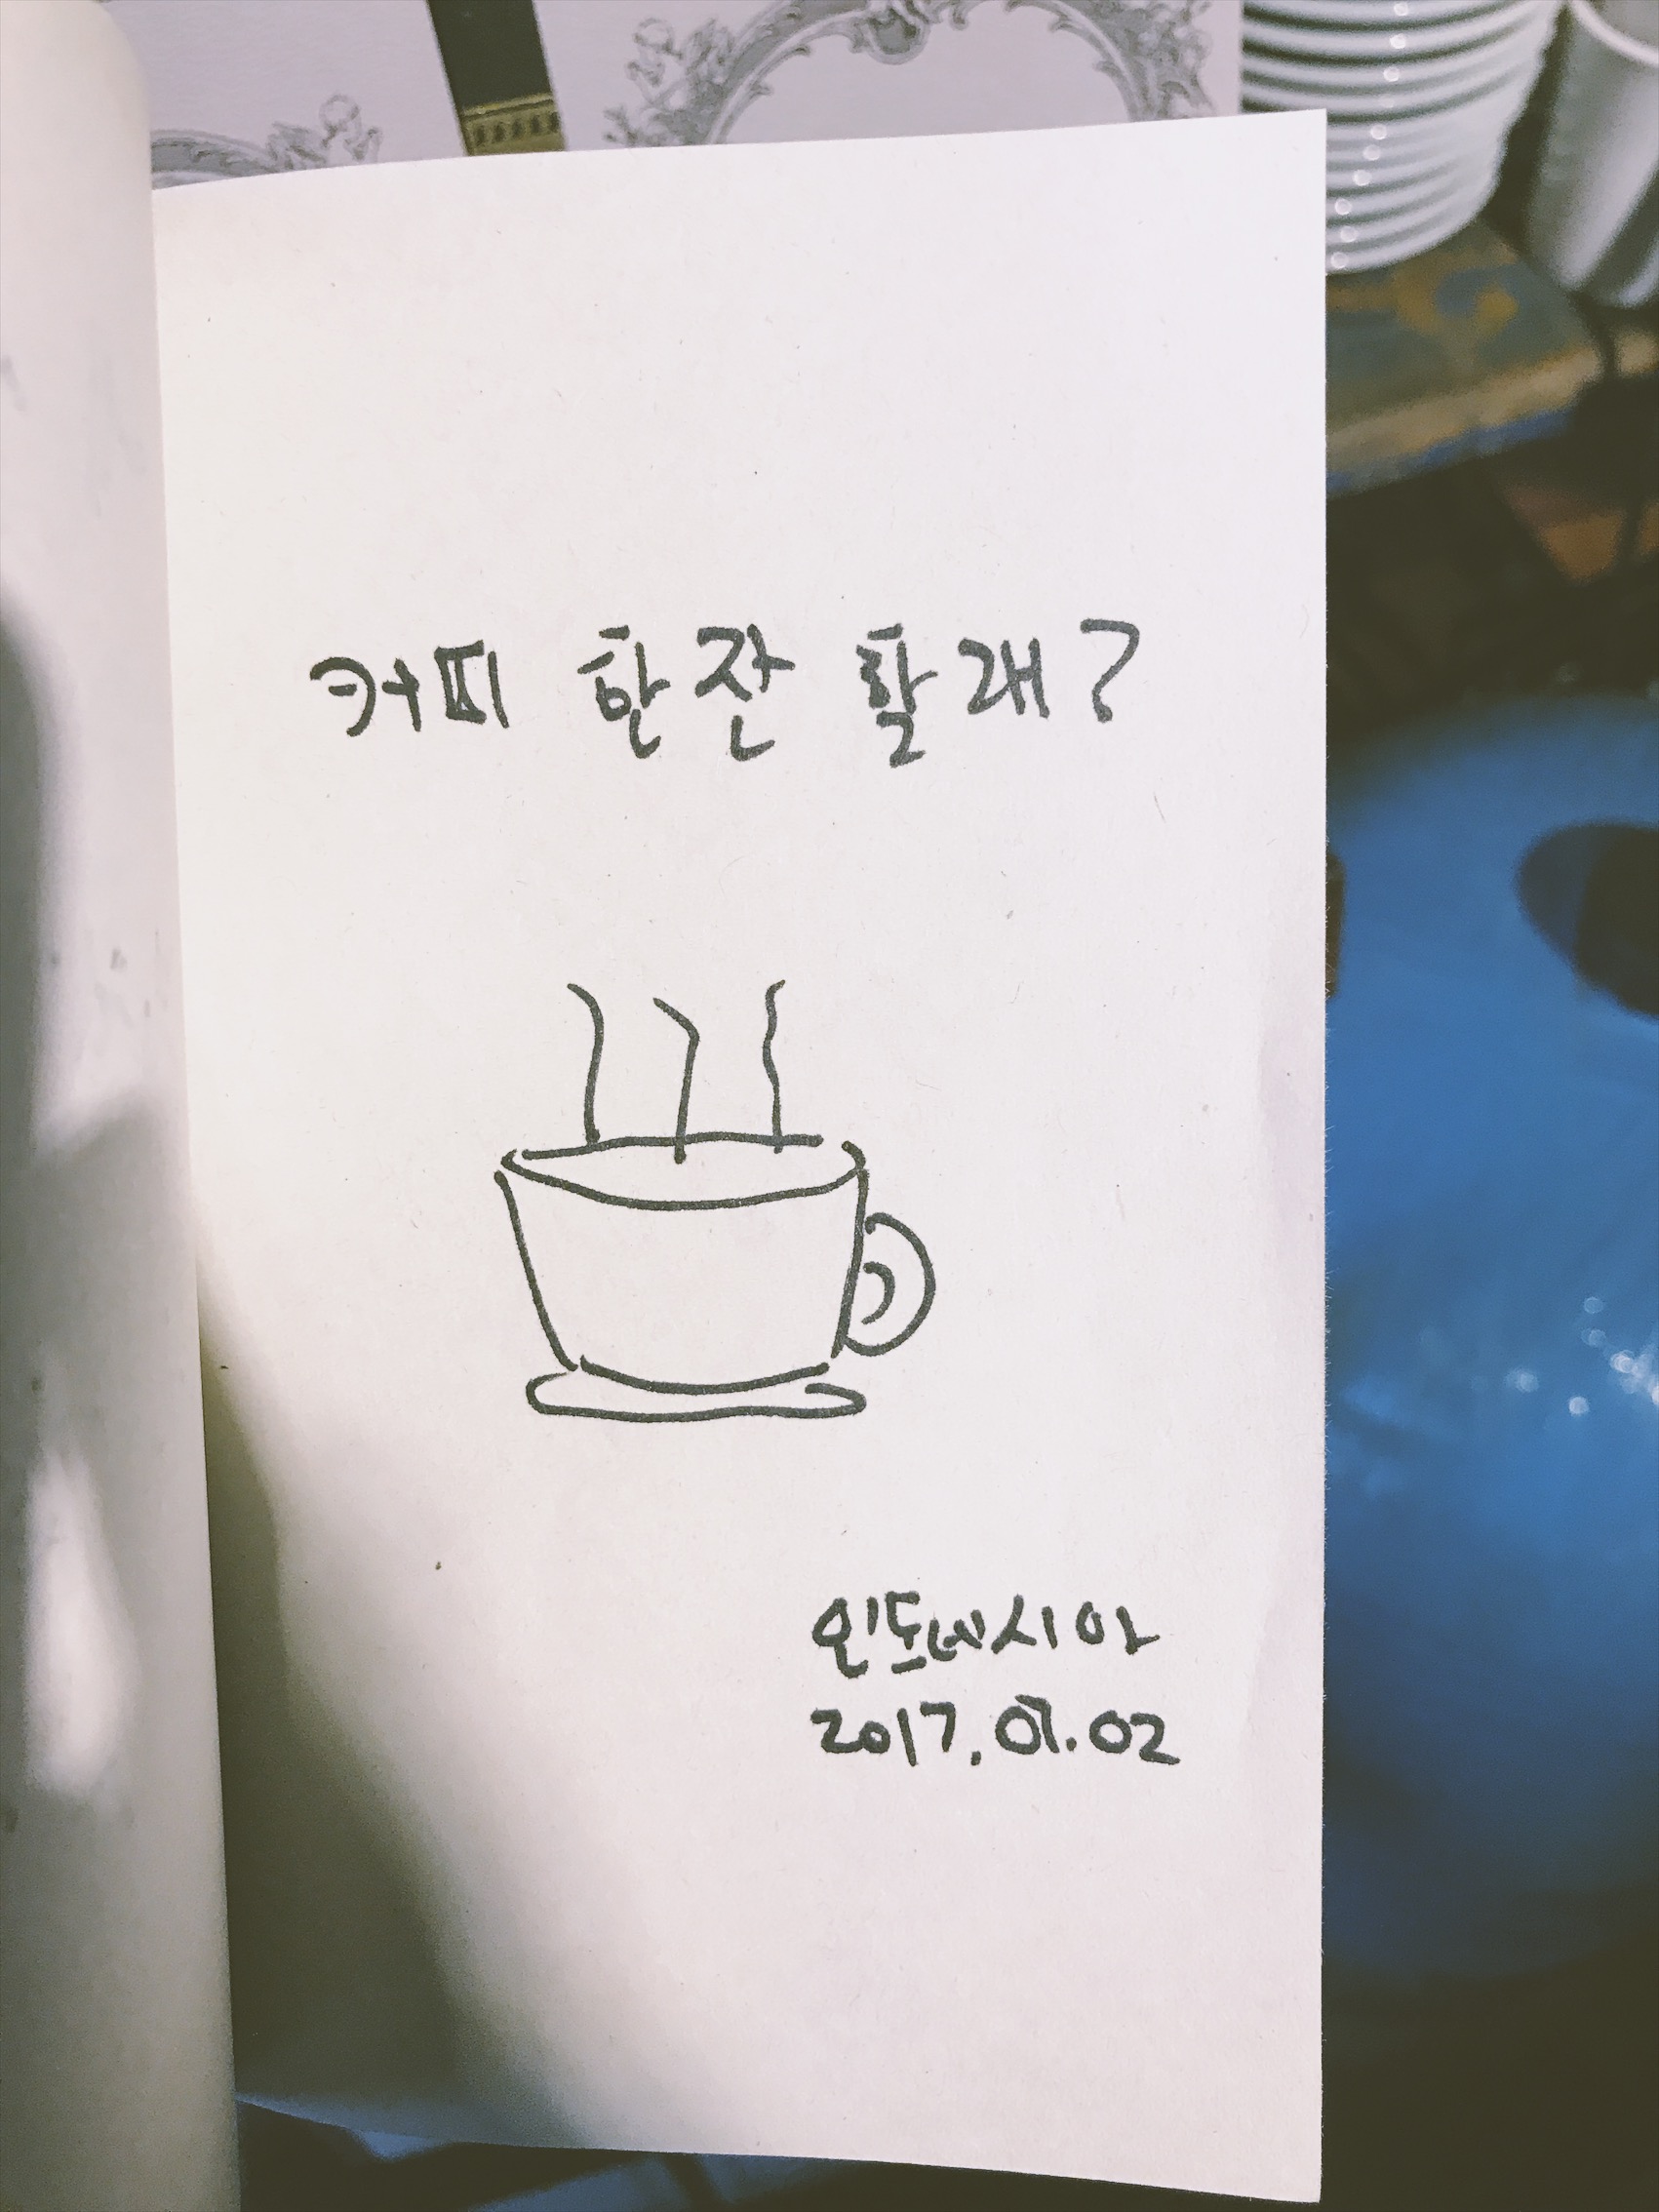 커피 한잔 할래?
인도네시아
2017.07.02